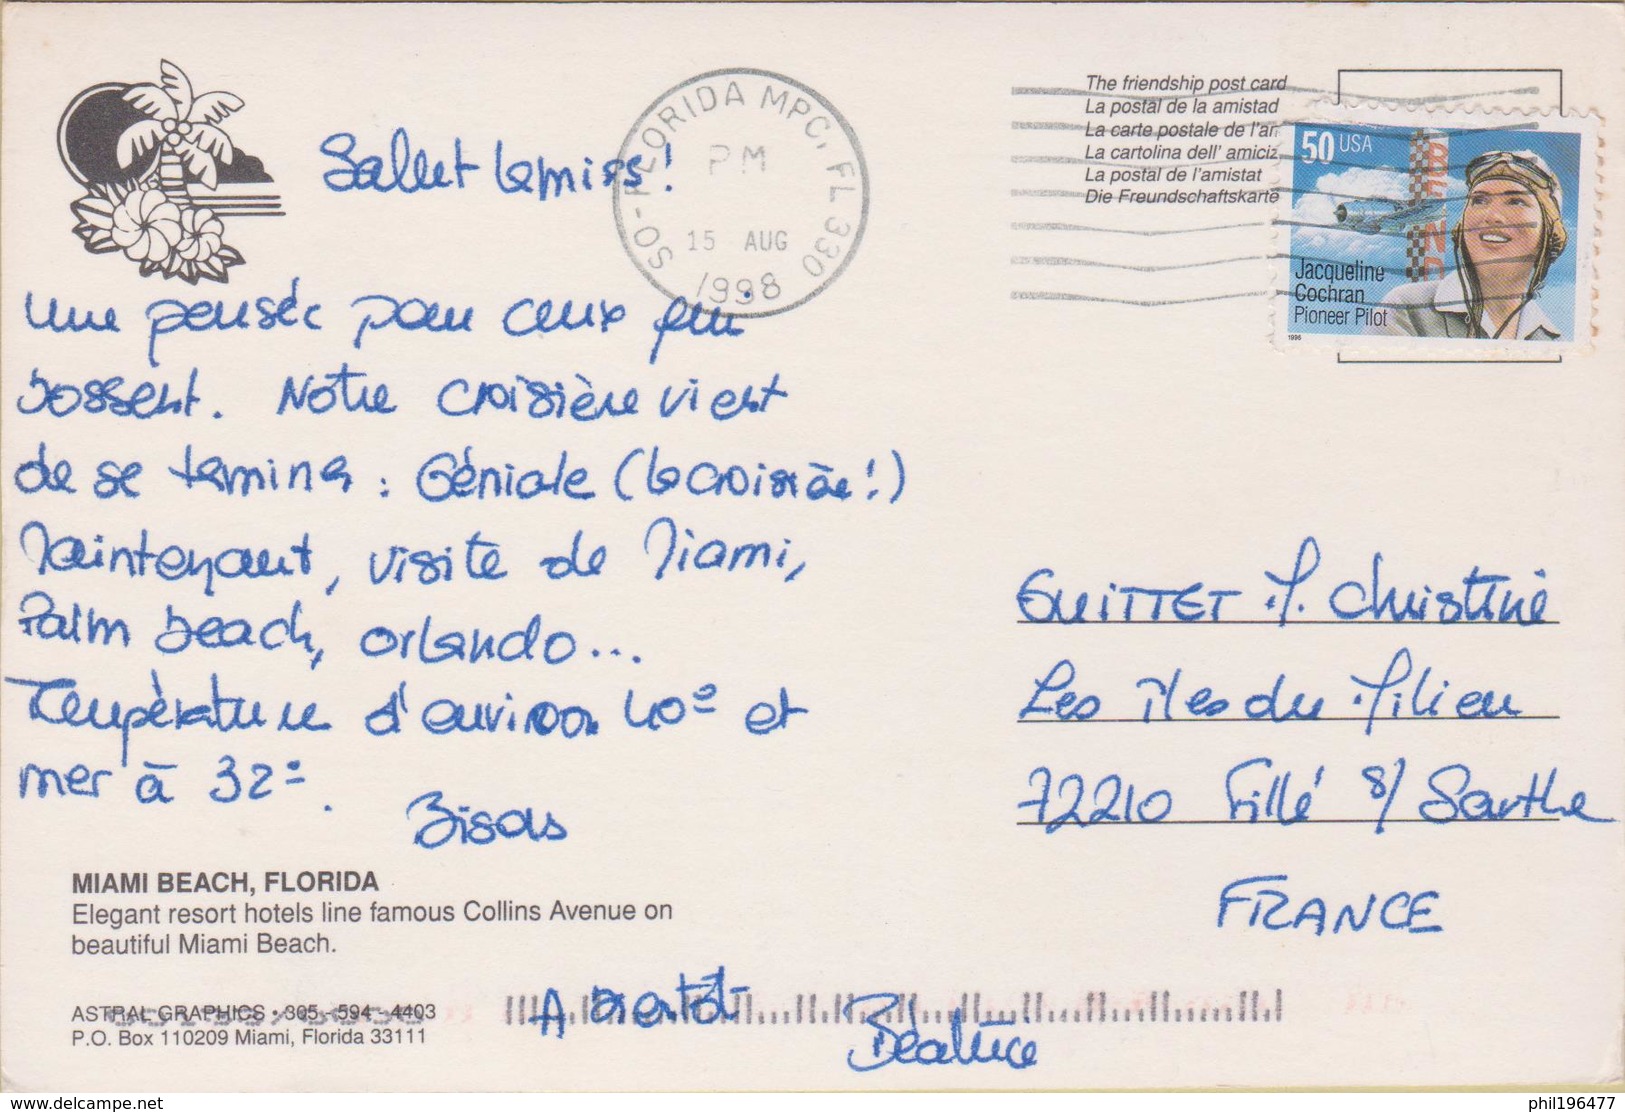 Sallut la miss !
Une pensée pour ceux qui
bossent. Notre croisière vient
de se terminer : Géniale (la croisière !)
Maintenant, visite de Miami,
Palm beach, Orlando...
Température d'environ 40° et
mer à 32°.
Bisous
A Bientôt
Béatrice
MIAMI BEACH, FLORIDA
Elegant resort hotels line famous Collins Avenue on
beautiful Miami Beach.
ASTRAL GRAPHICS • 305 - 594 - 4403
P.O. Box 110209 Miami, Florida 33111
SO-FLORIDA MPC, FL 330
PM
15 AUG
1998
The friendship post card
La postal de la amistad
La carte postale de l'am
La cartolina dell' amiciz
La postal de l'amistat
Die Freundschaftskarte
50 USA
BEND
Jacqueline
Cochran
Pioneer Pilot
1996
GUITTET M. Christine
Les îles du Milieu
72210 Fillé s/ Sarthe
FRANCE
delcampe.net
phil196477